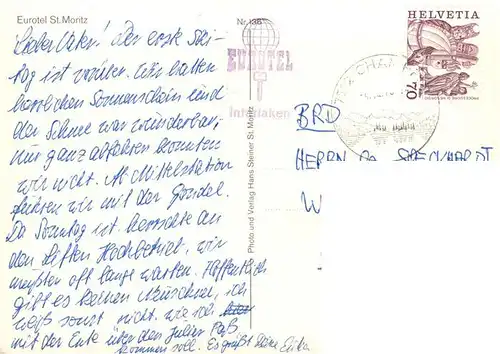 Eurotel St. Moritz
Lieber Vater! Der erste Ski-
tag ist vorüber. Wir hatten
herrlichen Sonnenschein und
der Schnee war wunderbar,
nur ganz abfahren konnten
wir nicht. Ab Mittelstation
fuhren wir mit der Gondel.
Da Sonntag ist herrschte an
den Liften Hochbetrieb, wir
mußten oft lange warten. Hoffentlich
gibt es keinen Neuschnee, ich
weiß sonst nicht, wie ich
mit der Ente über den Julier Paß
kommen soll. Es grüßt Deine
Nr. 136
EUROTEL
Interlaken
Photo und Verlag Hans Steiner St. Moritz
HELVETIA
70
BRD
HERRN
W